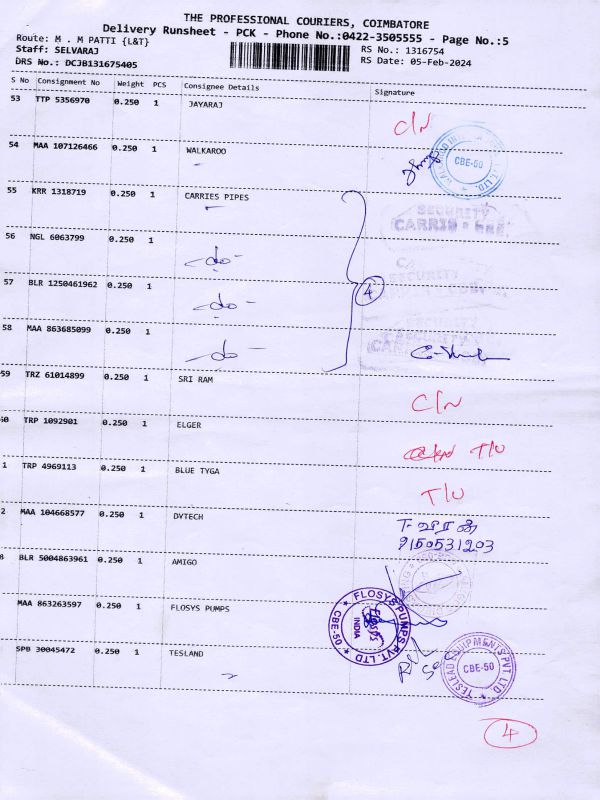 THE PROFESSIONAL COURIERS, COIMBATORE
Delivery Runsheet - PCK - Phone No.:0422-3505555 - Page No.:5
Route: M . M PATTI {L&T}
RS No.: 1316754
Staff: SELVARAJ
RS Date: 05-Feb-2024
DRS No.: DCJB131675405
S No Consignment No Weight PCS Consignee Details Signature
53 TTP 5356970 0.250 1 JAYARAJ C/N
54 MAA 107126466 0.250 1 WALKAROO CBE-50
55 KRR 1318719 0.250 1 CARRIES PIPES SECURITY
56 NGL 6063799 0.250 1 -do- SECURITY
57 BLR 1250461962 0.250 1 -do- 4
58 MAA 863685099 0.250 1 -do-
59 TRZ 61014899 0.250 1 SRI RAM C/N
60 TRP 1092901 0.250 1 ELGER T/U
1 TRP 4969113 0.250 1 BLUE TYGA T/U
2 MAA 104668577 0.250 1 DVTECH
9150531203
BLR 5004863961 0.250 1 AMIGO
MAA 863263597 0.250 1 FLOSYS PUMPS FLOSYS PUMPS PVT. LTD CBE-50 INDIA
SPB 30045472 0.250 1 TESLAND TESLEAD EQUIPMENTS PVT LTD CBE-50
4